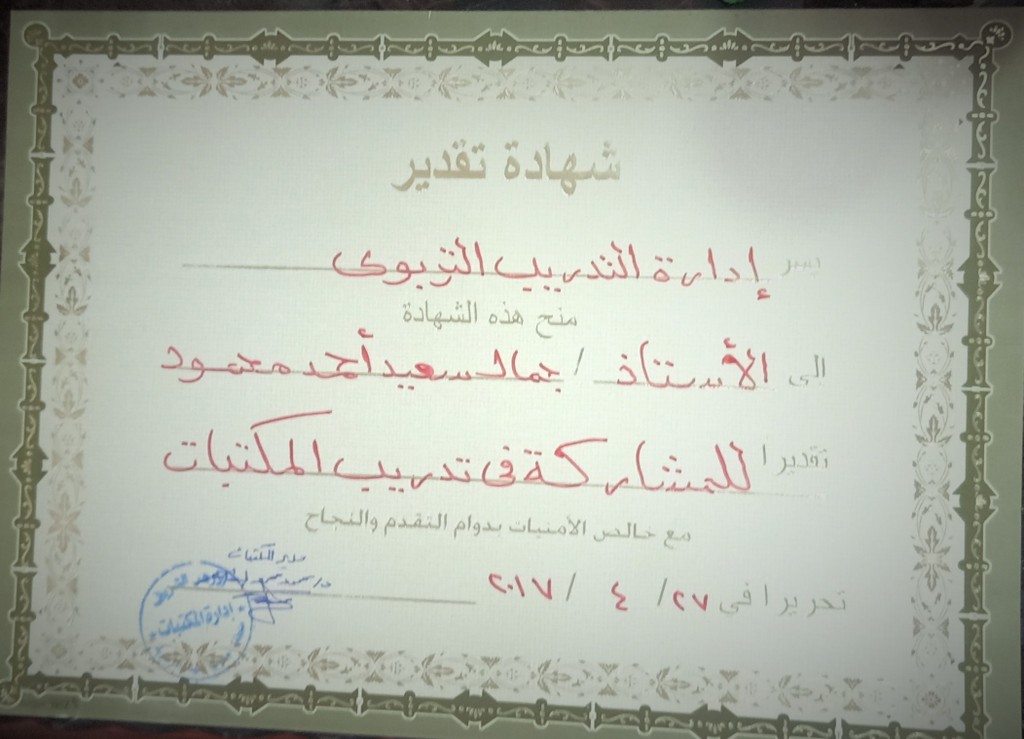 شهادة تقدير
يسر إدارة التدريب التربوى
منح هذه الشهادة
الى الأستاذ / جمال سعيد أحمد محمود
تقديرا للمشاركة فى تدريب المكتبات
مع خالص الأمنيات بدوام التقدم والنجاح
تحريرا في ٢٧ / ٤ / ٢٠١٧
مدير المكتبات
إدارة المكتبات